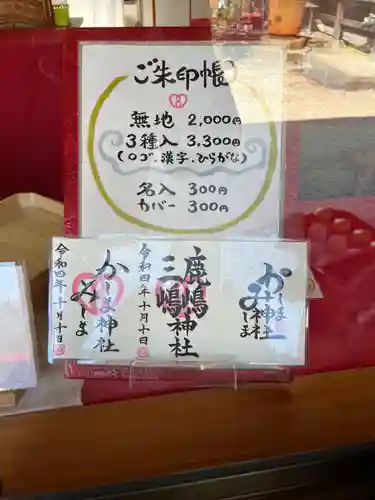 ご朱印帳
無地 2,000円
3種入 3,300円
(ロゴ.漢字.ひらがな)
名入 300円
カバー 300円
令和四年十月十日
かしま神社
みしま
令和四年十月十日
鹿嶋神社
三嶋
かしま神社
みしま